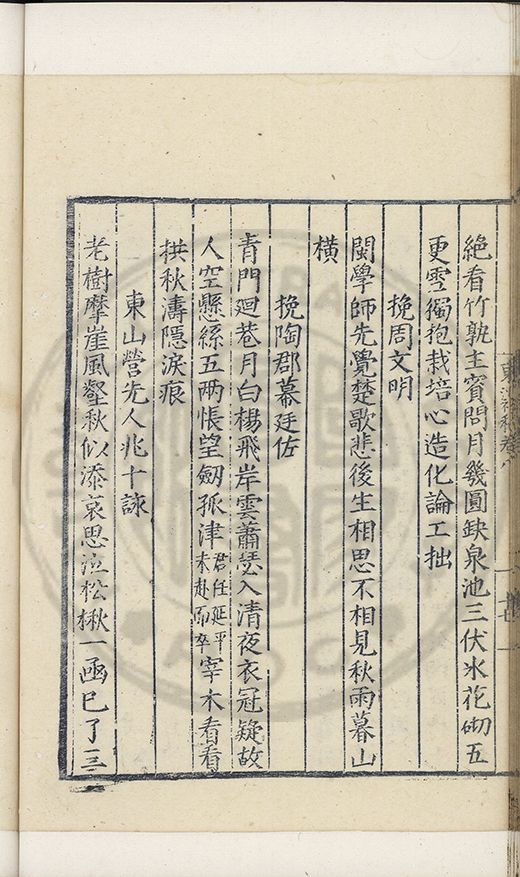 絶看竹孰主賓問月幾圓缺泉池三伏氷花砌五
更雪獨抱栽培心造化論工拙
挽周文明
閩學師先覺楚歌悲後生相思不相見秋雨暮山
橫
挽陶郡幕廷佐
青門廻巷月白楊飛岸雲蕭瑟入清夜衣冠疑故
人空懸絲五两悵望劒孤津君任延平未赴而卒宰木看看
拱秋濤隱淚痕
東山營先人兆十詠
老樹摩崖風壑秋似添哀思泣松楸一函巳了三